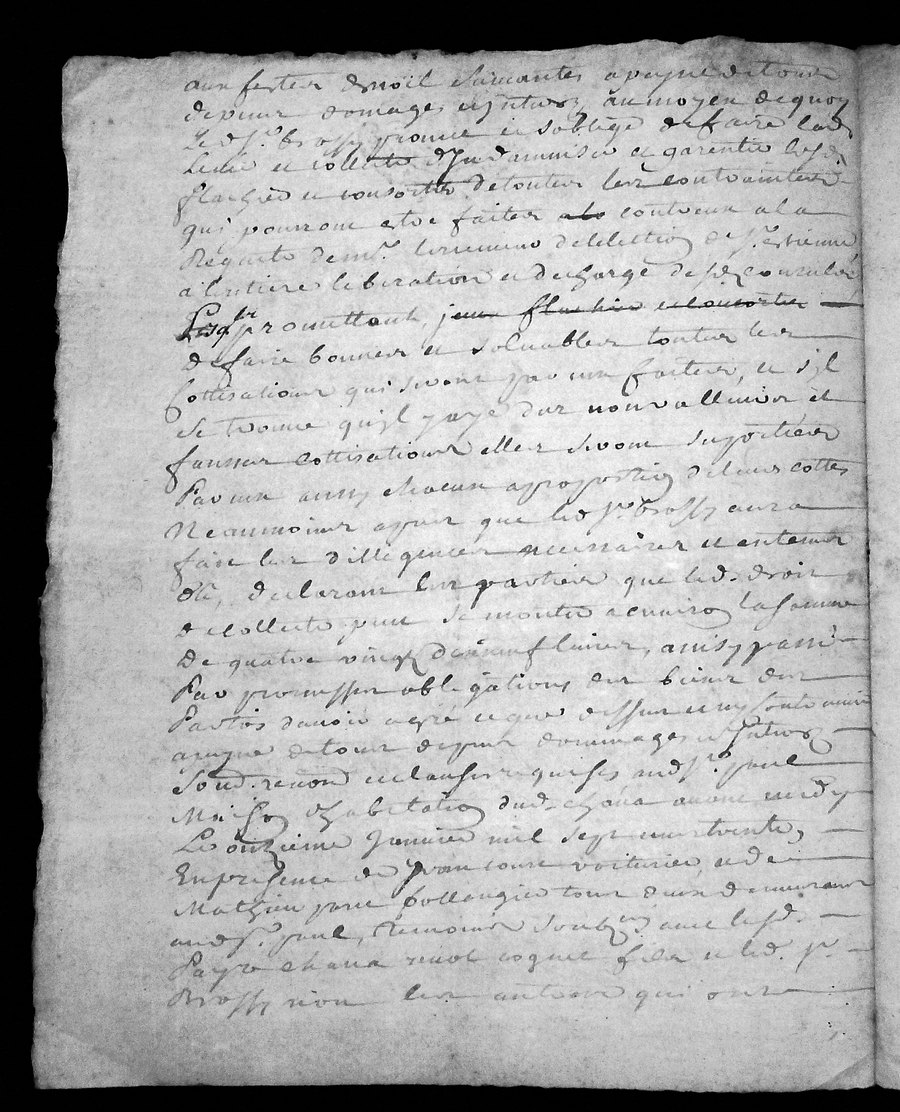 aux festes de noïl suivantes a peyne de tous
depens domages et jnterez au moyen de quoy
Led. sr. brossy promet et soblige de faire lad.
Leuée et collecte d'jndamniser et garentir lesd.
flachier et consortes de toutes les contraintes
qui pourront estre faites contreux a la
Requete de mr. le receueur de lelection de st. estienne
a l'entiere liberation et decharge desd. consulat
Lesqls promettent,
de faire bonnes et soluables toutes les
Cottisations qui seront par eux faites, et s'jl
se trouue qu'jl y aye des nonvalleurs et
fausses cottisations elles seront suportées
Par eux aussy chacun a proportion de leurs cottes
Neaumoins apres que led. sr. brossy aura
fait les dilligences necessaires et
declarant les parties que led. droit
de collecte peut se monter a enuiron la somme
De quatre vingt dixneuf liures, ainsy passé
Par promesses obligations des biens des
Parties dauoir agré ce que dessus et ny contreuenir
a peyne de tous depens dommages et jnterez
Soub. renon. et clauses requises aud. st. paul
Maison d'habitation dud. chana auant midy
Le onzieme Januier mil sept cents trente,
En presence de voiturier, et de
Mathieu boullengier tous deux demeurant
aud. st. paul, temoins soubsnes auec lesd.
Payre chana reuol coignet fila et led. sr.
Brossy non les autres qui ont